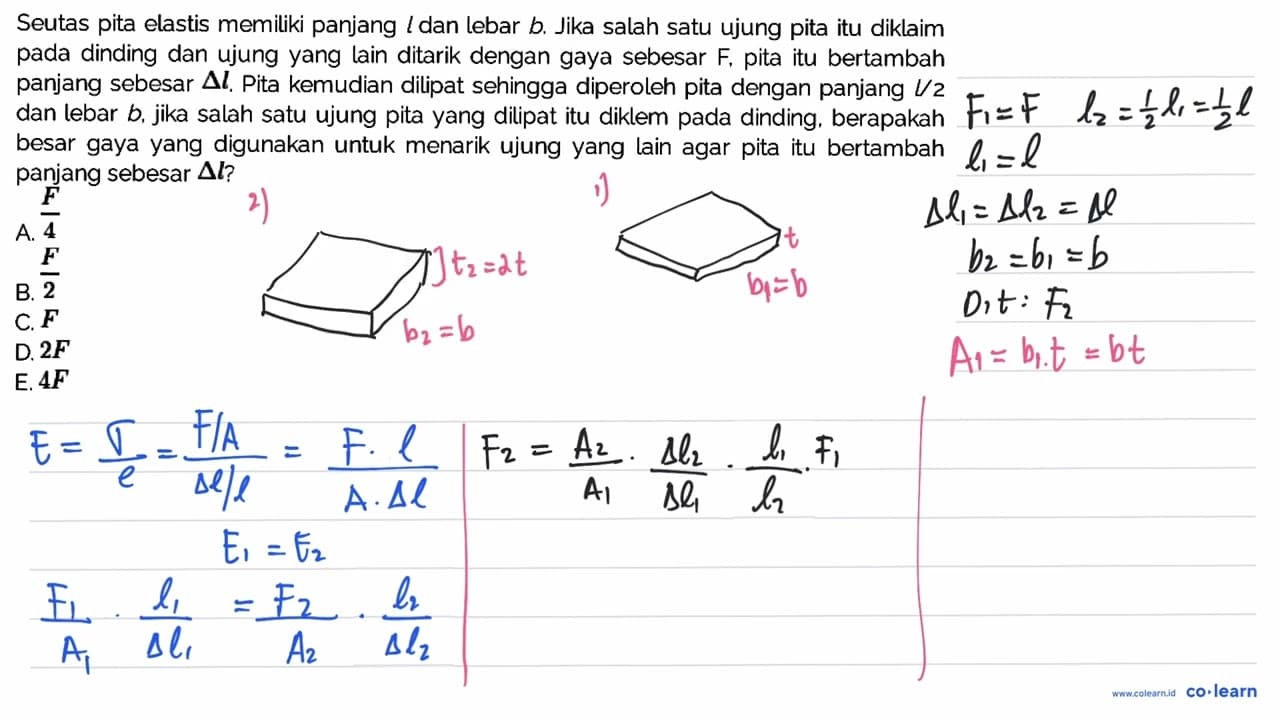 Seutas pita elastis memiliki panjang l dan lebar b. Jika salah satu ujung pita itu diklaim
pada dinding dan ujung yang lain ditarik dengan gaya sebesar F, pita itu bertambah
panjang sebesar Δl. Pita kemudian dilipat sehingga diperoleh pita dengan panjang l/2
dan lebar b, jika salah satu ujung pita yang dilipat itu diklem pada dinding, berapakah
besar gaya yang digunakan untuk menarik ujung yang lain agar pita itu bertambah
panjang sebesar Δl?
A. F/4
B. F/2
C. F
D. 2F
E. 4F
2)
]t₂=2t
b₂=b
1)
t
b₁=b
F₁=F l₂=½l₁=½l
l₁=l
Δl₁=Δl₂=Δl
b₂=b₁=b
D,t: F₂
A₁=b₁.t=bt
E = σ/e = F/A / Δl/l = F.l / A.Δl
E₁=E₂
F₁/A₁ . l₁/Δl₁ = F₂/A₂ . l₂/Δl₂
F₂ = A₂/A₁ . Δl₂/Δl₁ . l₁/l₂ . F₁
www.colearn.id co·learn